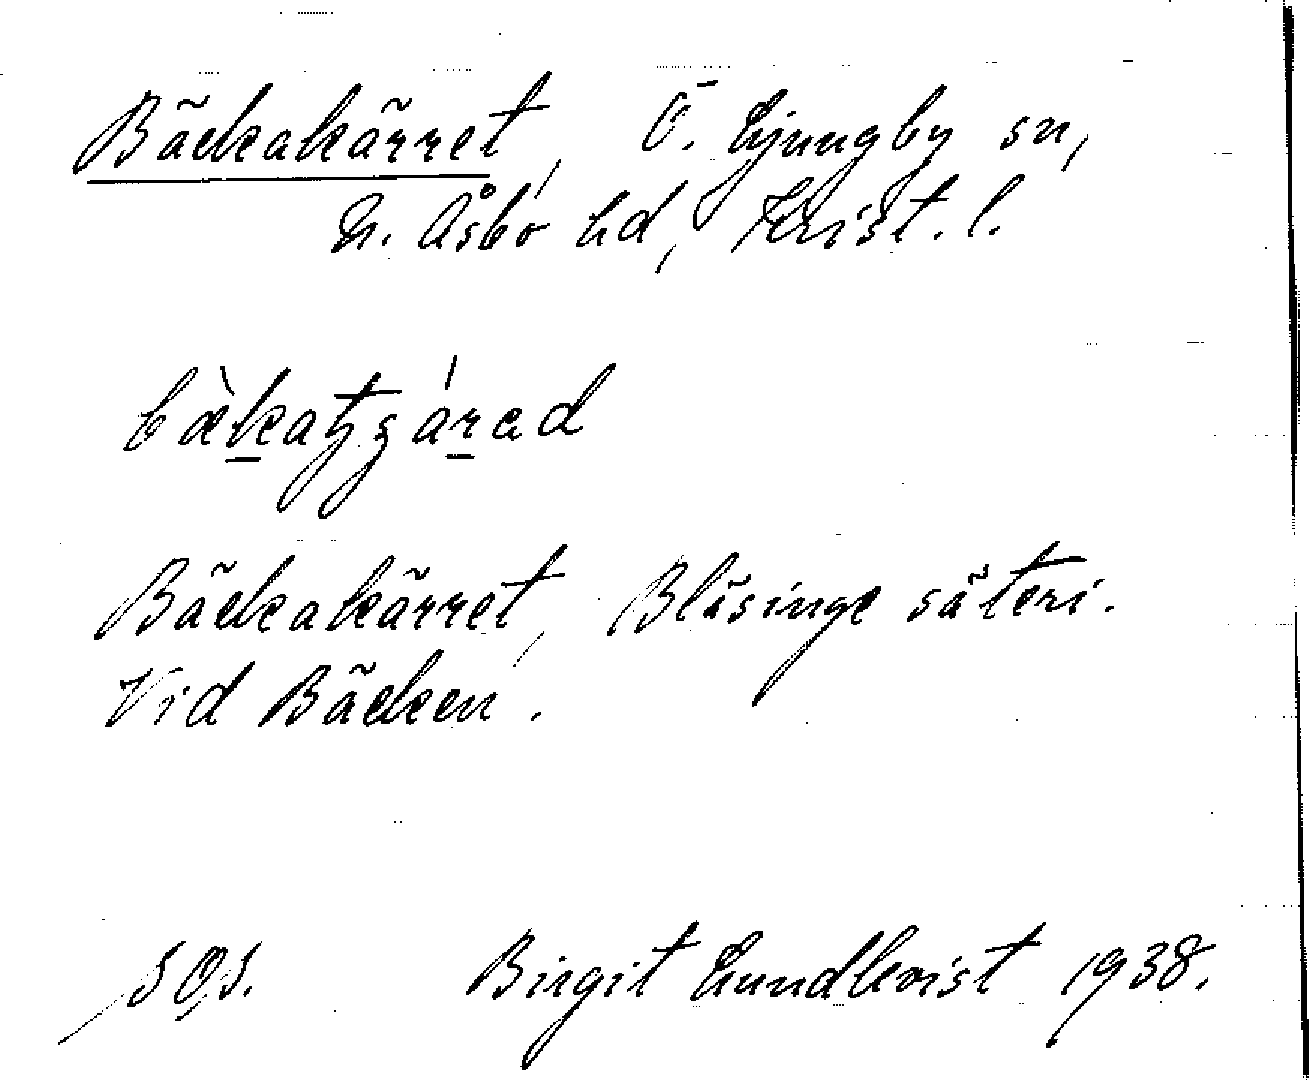 Bäckakärret, Ö. Ljungby sn,
N. Åsbo hd, Krist. l.
Bäckakärret, Bläsinge säteri.
Vid Bäcken.
Birgit Lundkvist 1938.